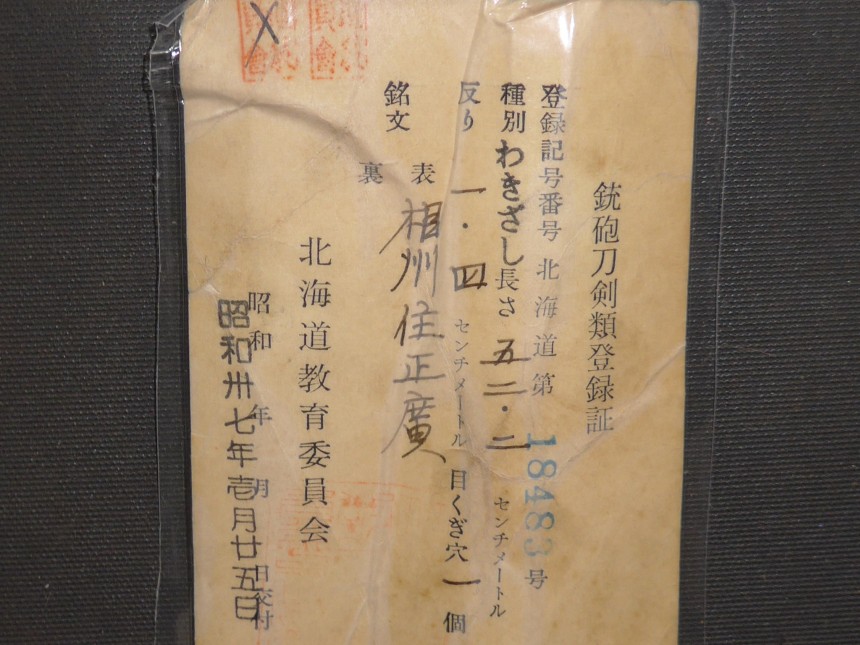 銃砲刀剣類登録証
登録記号番号 北海道第 18483 号
種別 わきざし 長さ 五二・二 センチメートル
反り 一・四 センチメートル 目くぎ穴 一 個
銘文
表 相州住正廣
裏
北海道教育委員会
昭和 年 月 日交付
昭和卅七年壱月廿五日